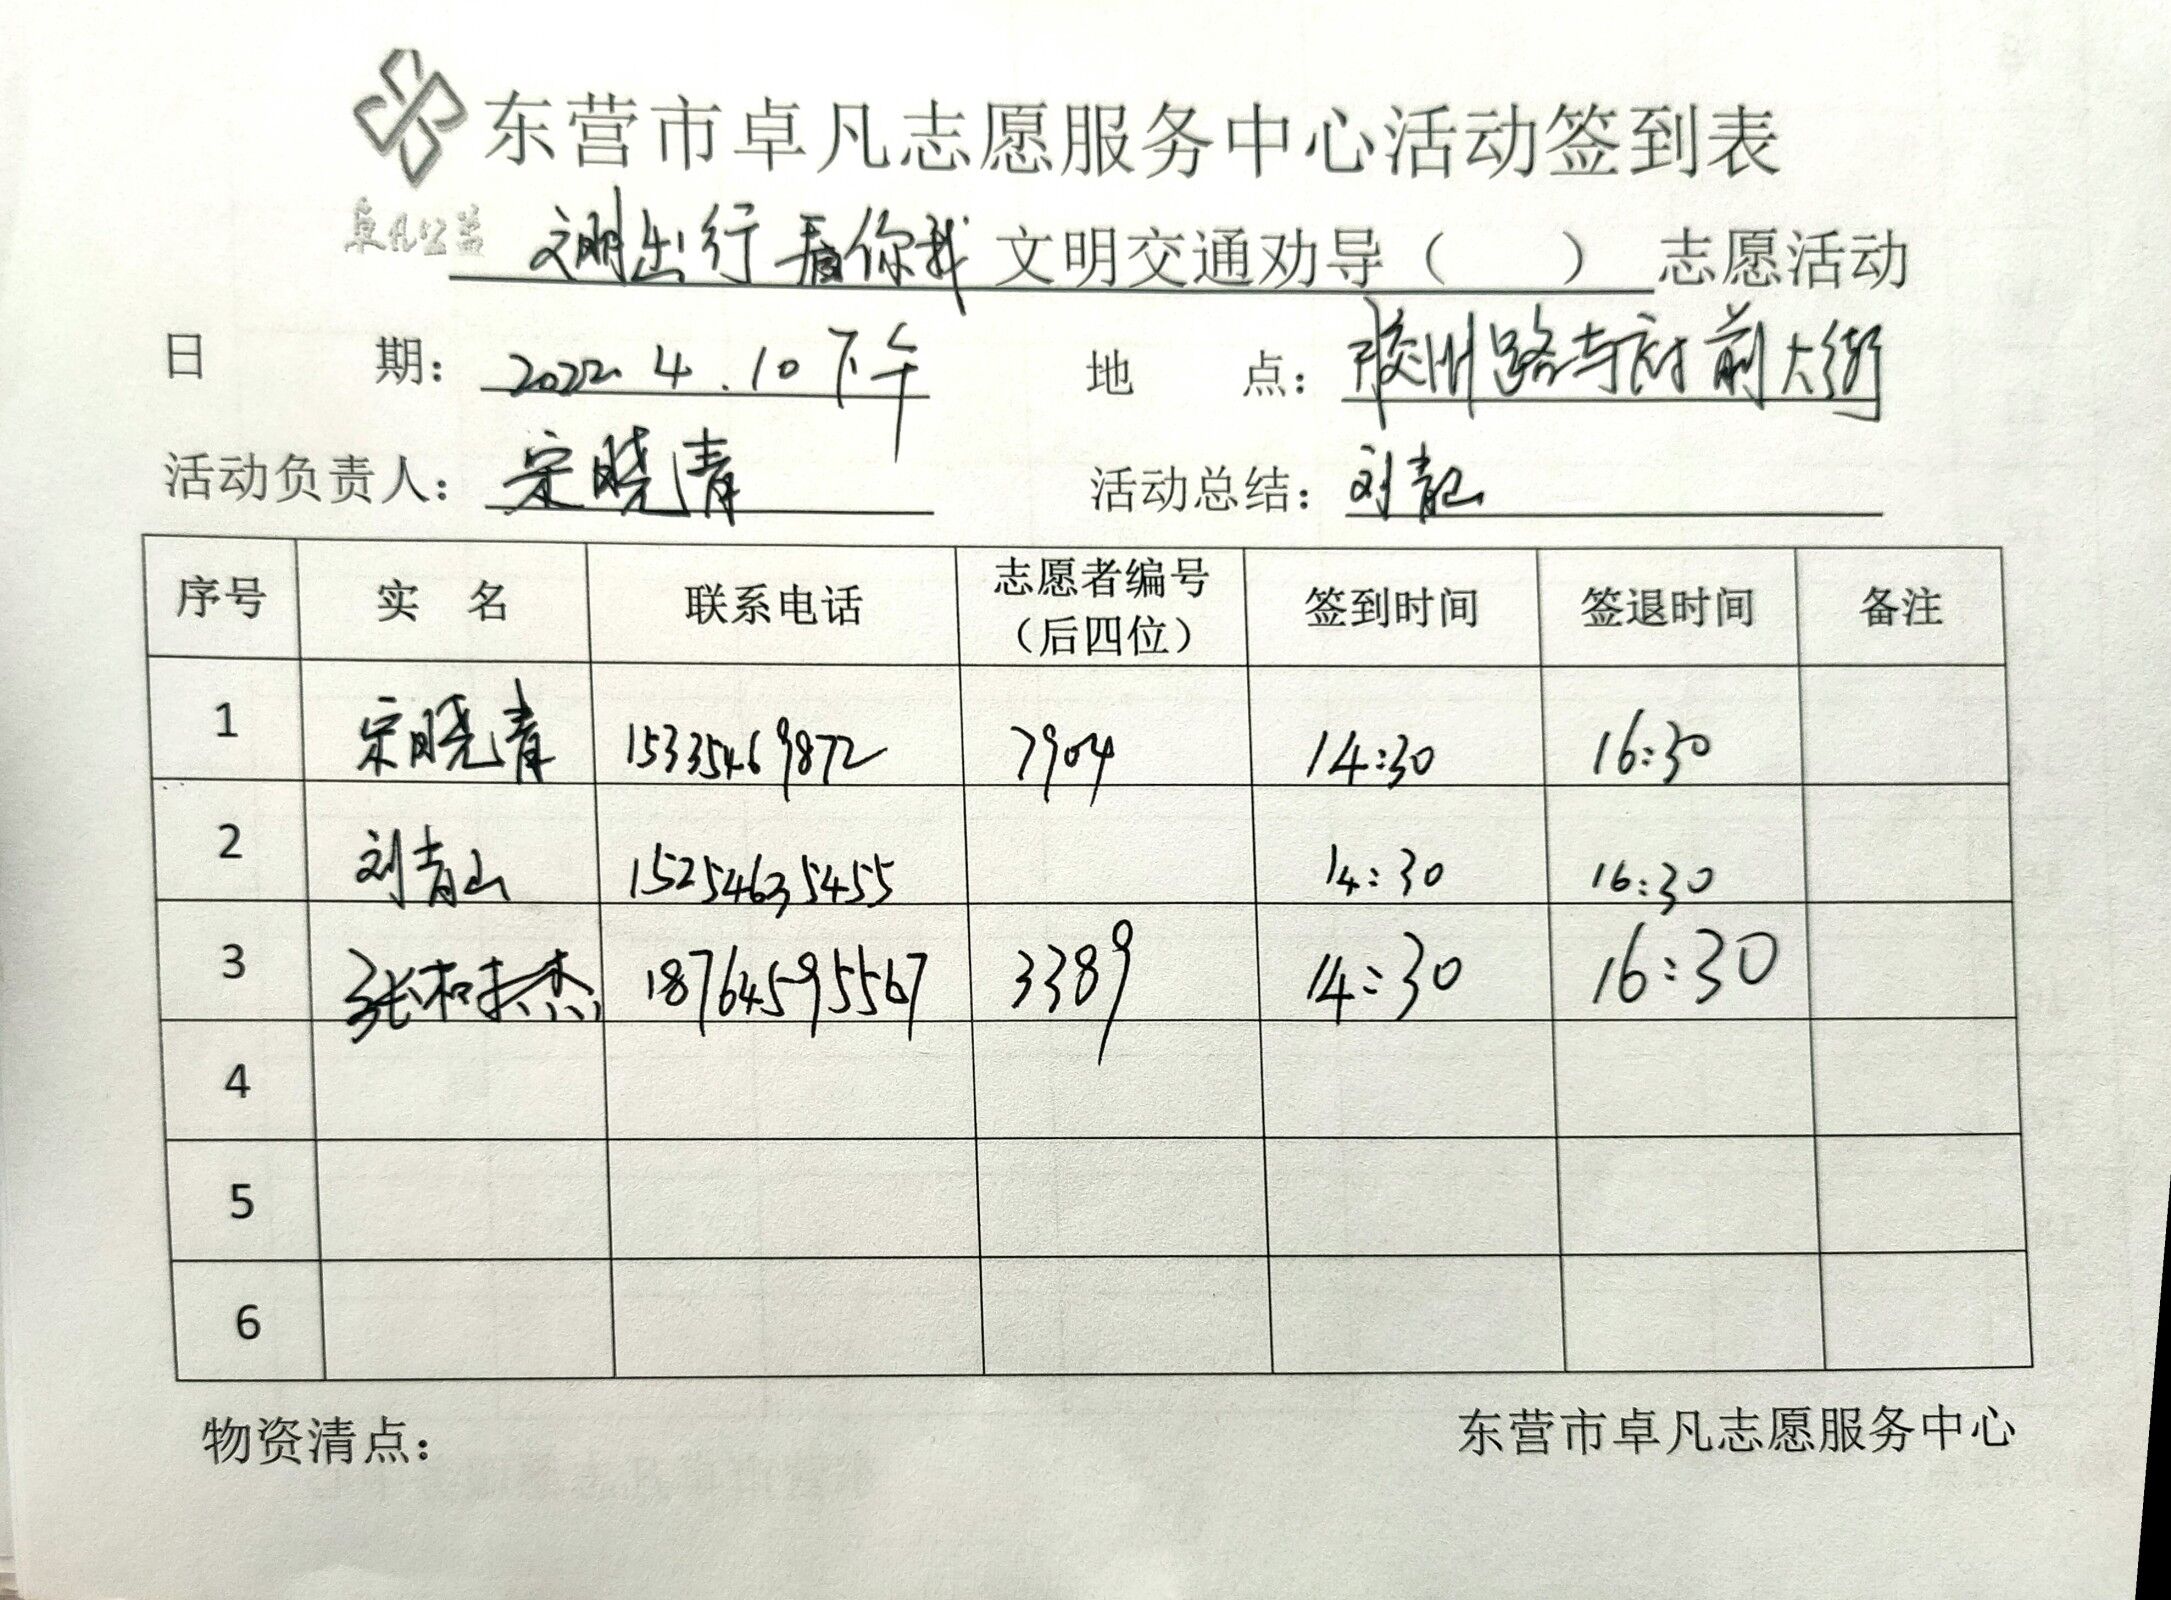 东营市卓凡志愿服务中心活动签到表
卓凡公益
文明出行 看你我 文明交通劝导（ ）志愿活动
日 期： 2022.4.10下午 地 点： 胶州路与府前大街
活动负责人： 宋晓青 活动总结： 刘青山
序号 实 名 联系电话 志愿者编号（后四位） 签到时间 签退时间 备注
1 宋晓青 15335469872 7904 14:30 16:30
2 刘青山 15254635455 14:30 16:30
3 张 杰 18764595567 3389 14:30 16:30
4
5
6
物资清点： 东营市卓凡志愿服务中心